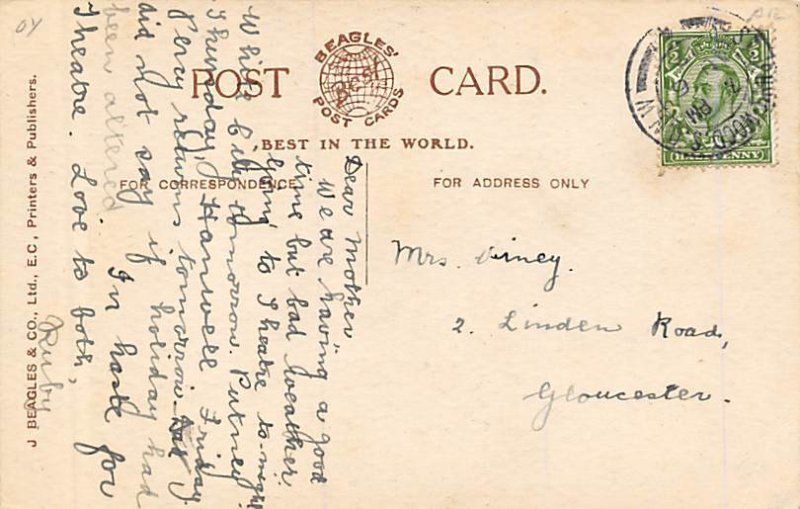 BEAGLES'
POST CARDS
POST CARD.
BEST IN THE WORLD.
FOR CORRESPONDENCE
FOR ADDRESS ONLY
J BEAGLES & CO., Ltd., E.C., Printers & Publishers.
Dear Mother
We are having a good
time but bad weather.
Goin' to Theatre to-night
White City tomorrow. Putney
Thursday, Hanwell Friday
Percy returns tomorrow.
did not say if holiday had
been altered
In haste for
Theatre. Love to both,
Ruby
Mrs.
2. Linden Road,
Gloucester.